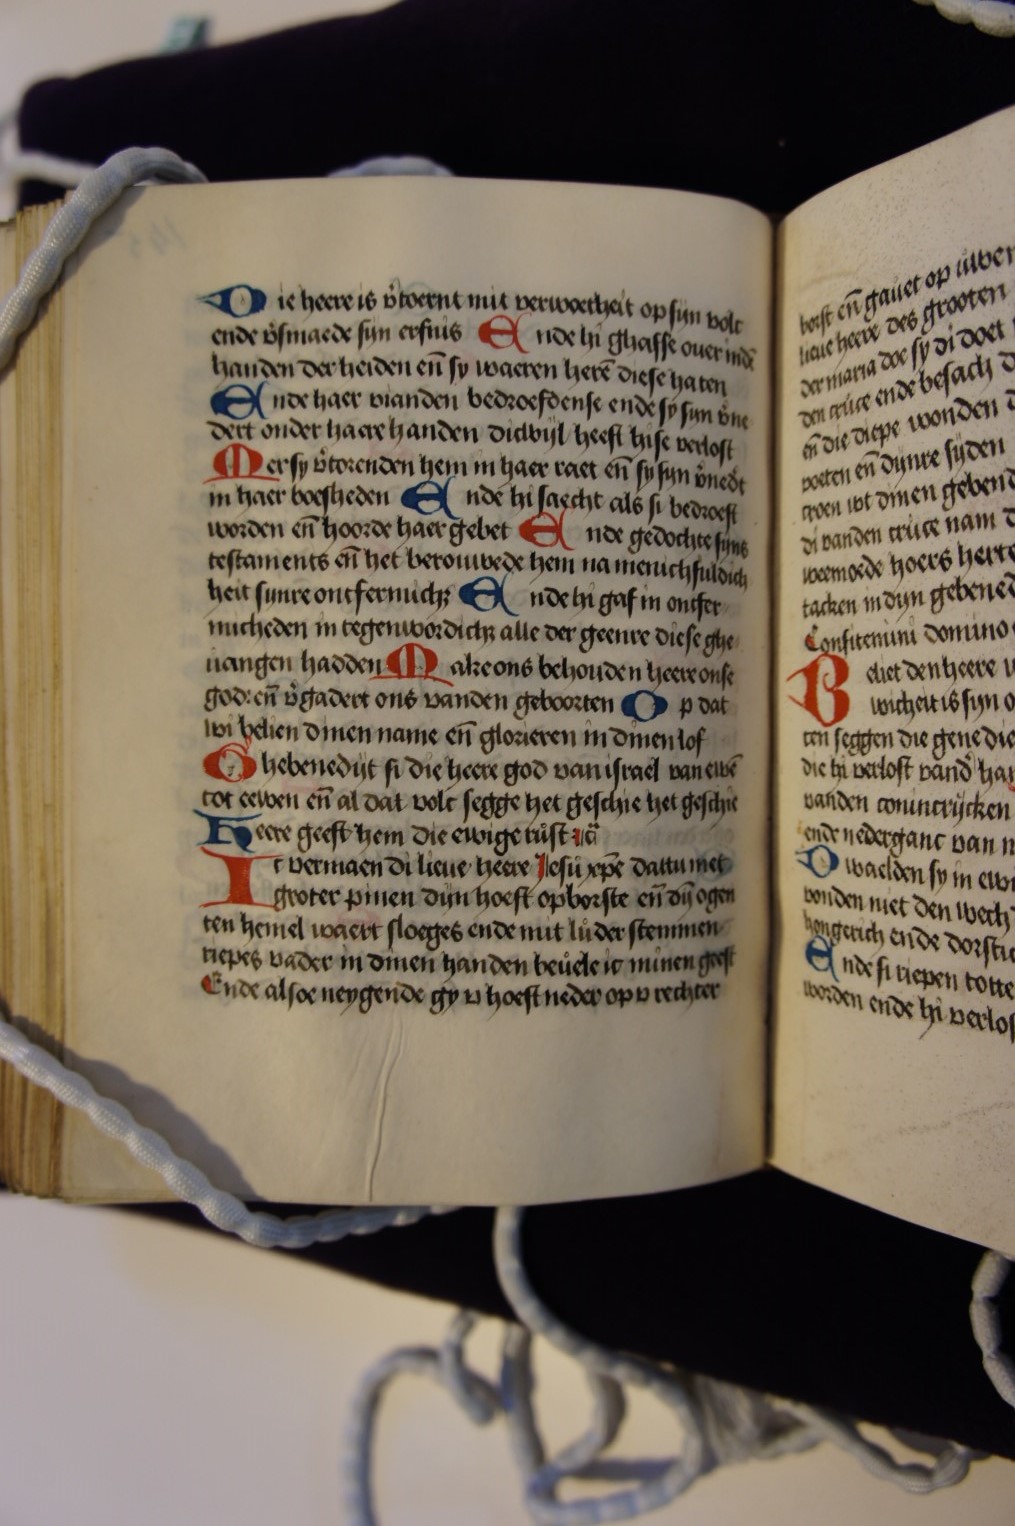 Die heere is v̄toernt mit verwoetheit op sijn volc
ende v̄smaede sijn erfnis Ende hi ghaffe ouer indē
handen der heiden en̄ sy waeren herē diese haten
Ende haer vianden bedroefdense ende sy sijn v̄ne
dert onder haere handen dicwijl heeft hise verlost
Mer sy v̄torenden hem in haer raet en̄ sy sijn v̄nedt
in haer boesheden Ende hi saecht als si bedroeft
worden en̄ hoorde haer gebet Ende gedochte sijns
testaments en̄ het berouwede hem na menichfuldich
heit sijnre ontfermich; Ende hi gaf in ontfer
micheden in tegenwordich; alle der geenre diese ghe
uangen hadden Make ons behouden heere onse
god: en̄ v̄gadert ons vanden geboorten Op dat
wi belien dinen name en̄ glorieren in dinen lof
Ghebenedijt si die heere god van israel van ewē
tot eewen en̄ al dat volc segge het geschie het geschie
Heere geeft hem die ewige rust
Ic vermaen di lieue heere Jesu xpē dattu met
groter pinen dijn hoeft opborste en̄ dij̄ ogen
ten hemel waert sloeges ende mit luder stemmen
riepes vader in dinen handen beuele ic minen geest
Ende alsoe neygende gy v hoeft neder op v rechter
borst en̄ gauet op uwen
lieue heere des grooten
der maria doe sy di doet
den cruce ende besach
en̄ die diepe wonden
voeten en̄ dijnre sijden
croen wt dinen
di vanden cruce nam
weemoede hoers herte
tacken in dijn
Confitemini domino
Beliet den heere
wicheit is sijn
ten seggen die gene die
die hi verlost vand̄
vanden conincrijcken
ende nederganc van
Dwaelden sy in
vonden niet den wech
hongerich ende
Ende si riepen totte
worden ende hi